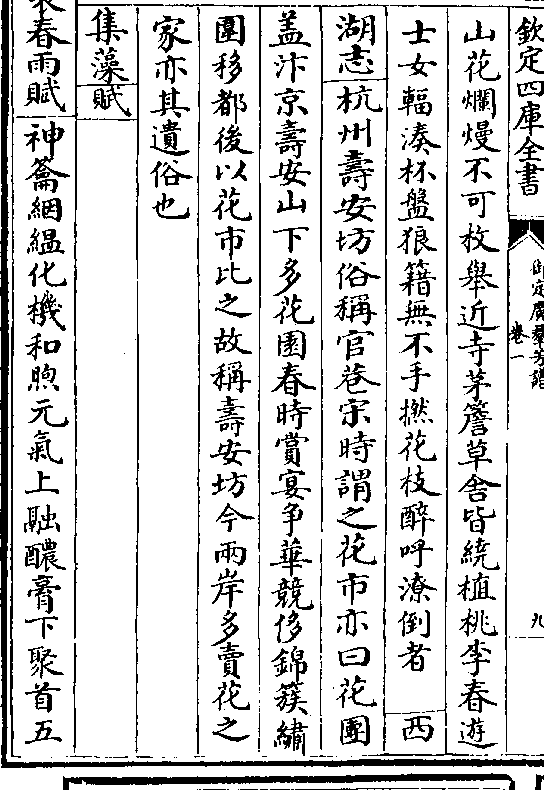 欽定四庫全書
御定廣羣芳譜
卷一
九
山花爛熳不可枚舉近寺茅簷草舍皆繞植桃李春遊
士女輻湊杯盤狼籍無不手撚花枝醉呼潦倒者 西
湖志杭州壽安坊俗稱官巷宋時謂之花市亦曰花團
盖汴京壽安山下多花園春時賞宴争華競侈錦簇繡
圍移都後以花市比之故稱壽安坊今兩岸多賣花之
家亦其遺俗也
集藻賦
春雨賦神龠絪緼化機和煦元氣上融醲膏下聚首五